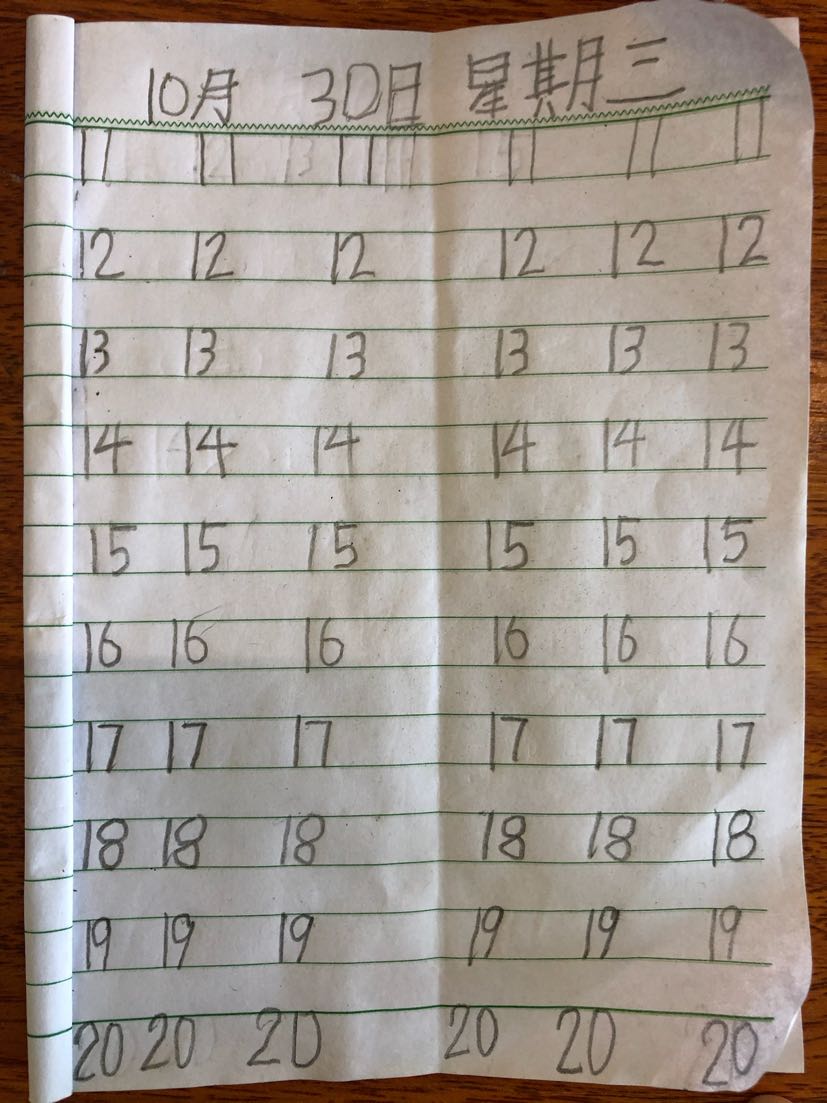 10月 30日 星期三
11 11 11 11 11 11
12 12 12 12 12 12
13 13 13 13 13 13
14 14 14 14 14 14
15 15 15 15 15 15
16 16 16 16 16 16
17 17 17 17 17 17
18 18 18 18 18 18
19 19 19 19 19 19
20 20 20 20 20 20